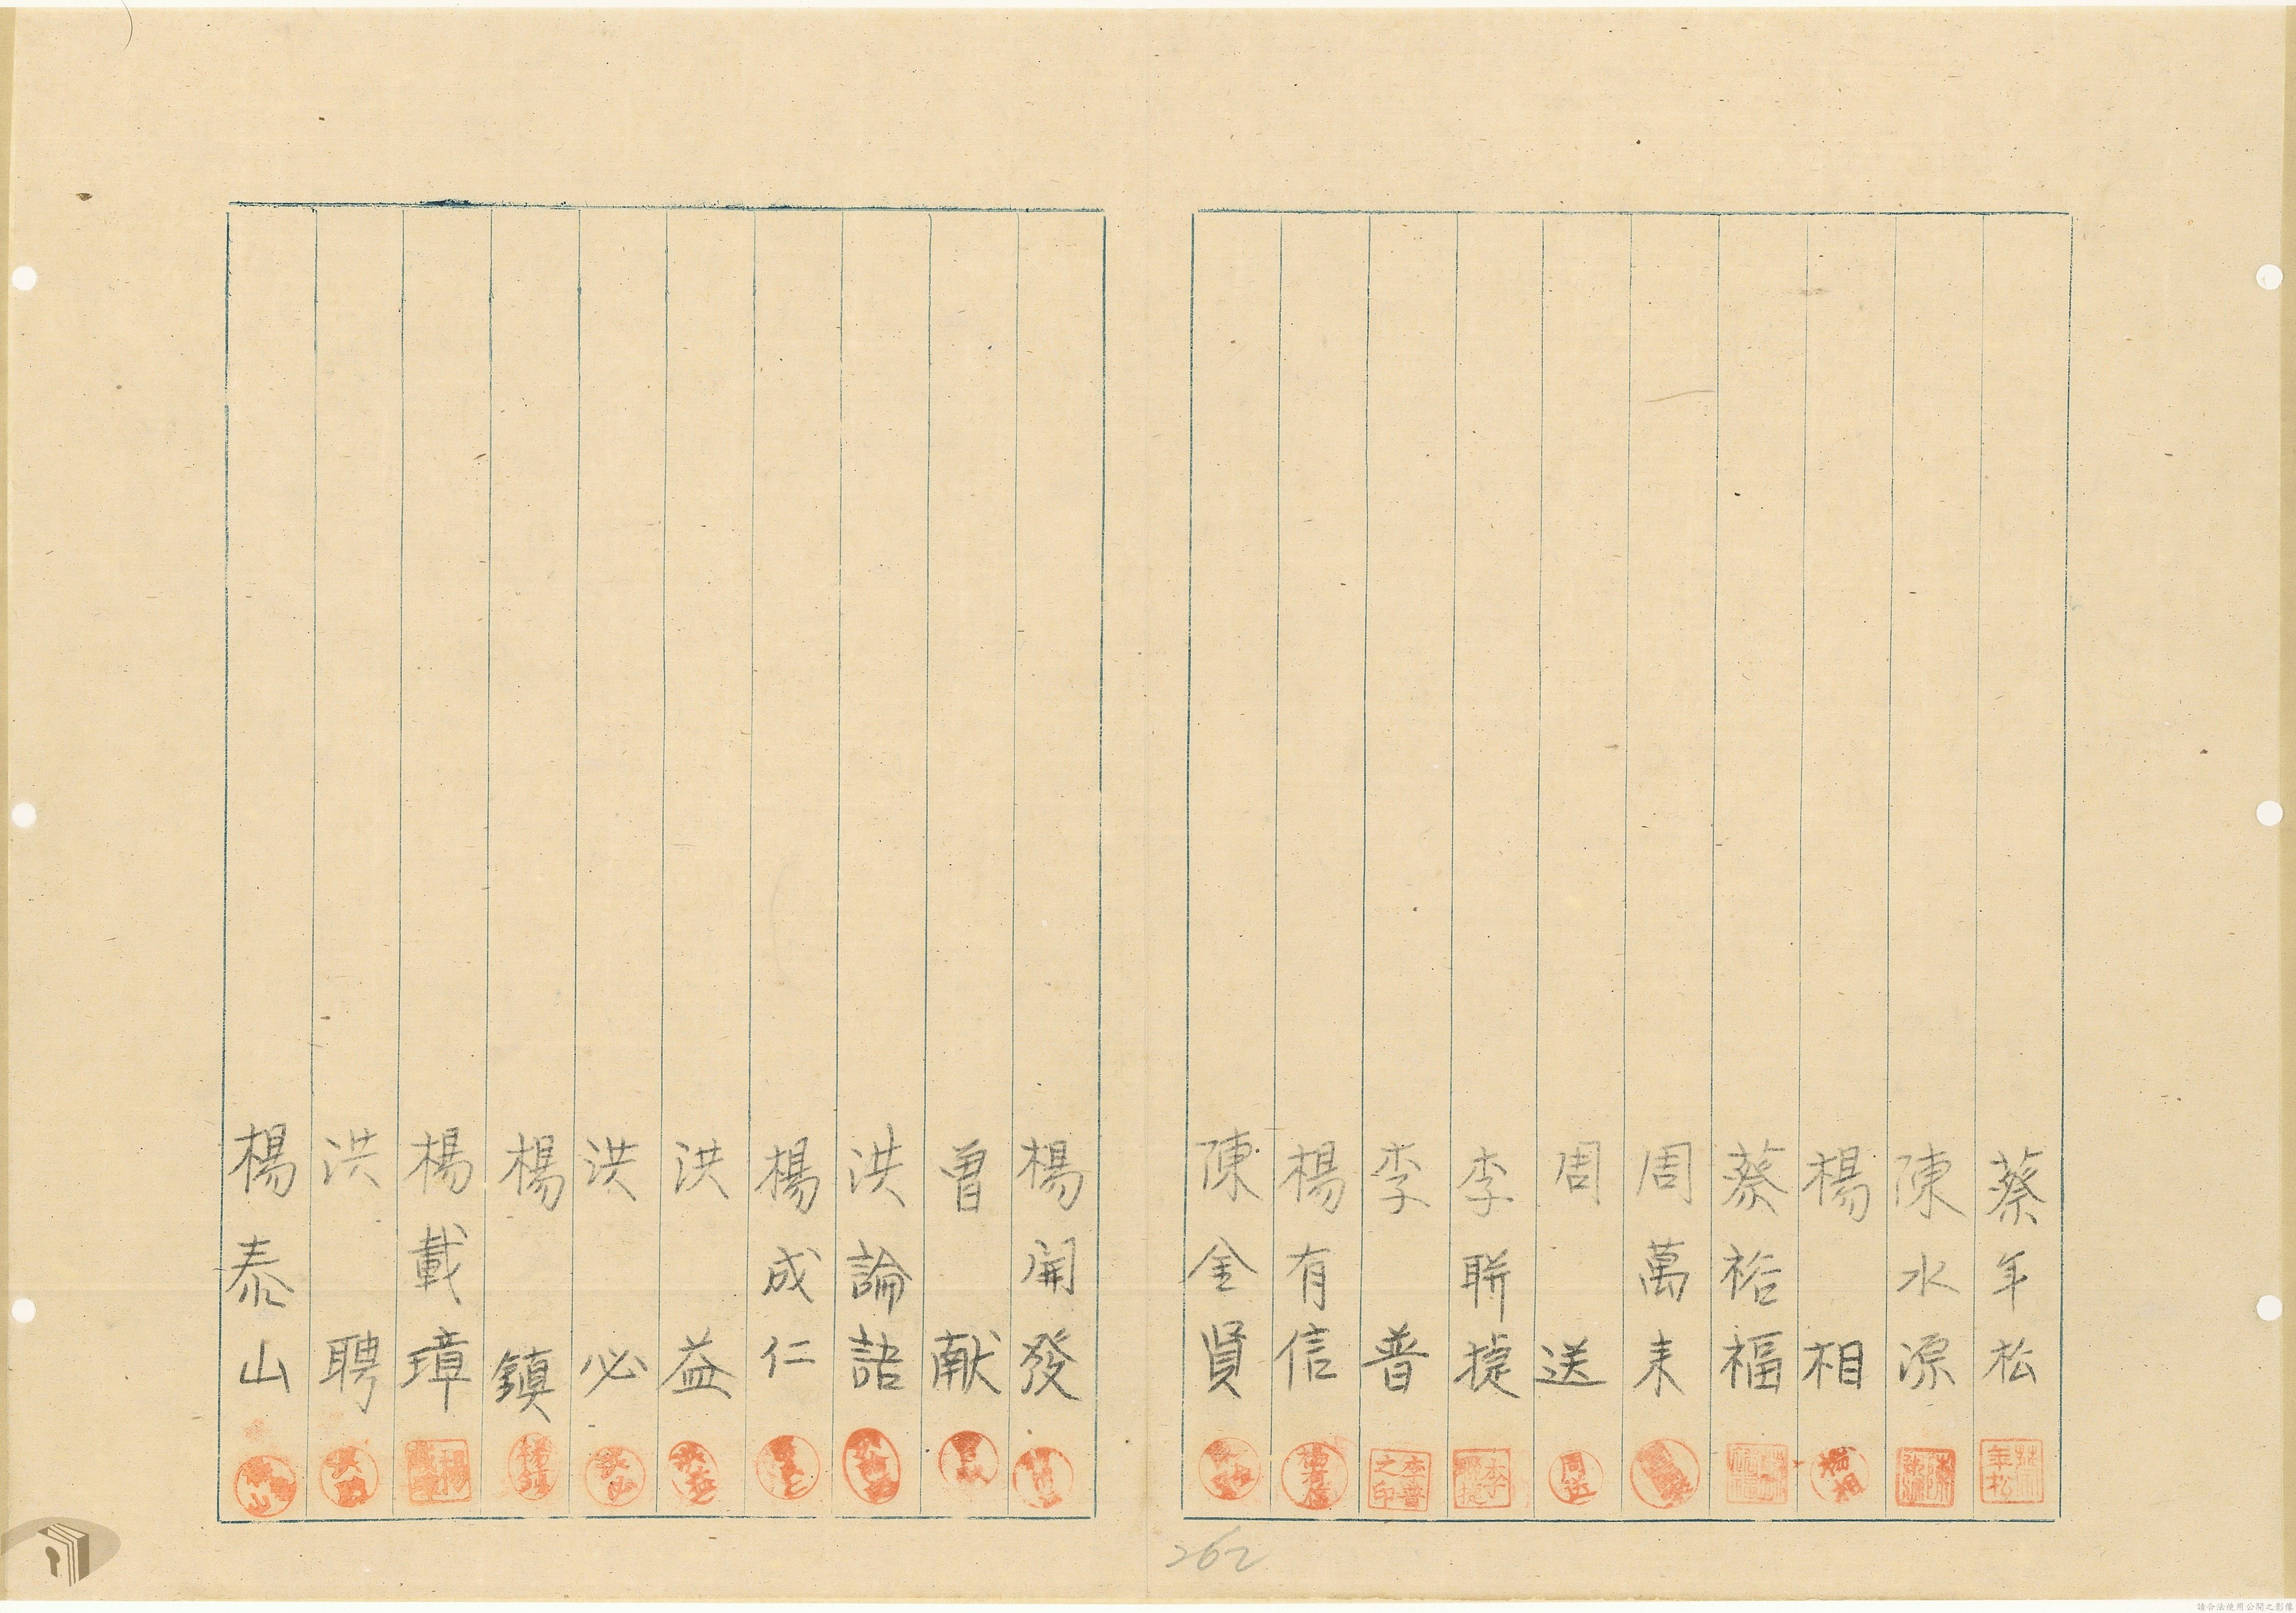 蔡年松
陳水源
楊相
蔡裕福
周萬来
周送
李聨捷
李普
楊有信
陳金賢
楊開發
曽献
洪論語
楊成仁
洪益
洪必
楊鎮
楊載璋
洪聘
楊泰山
262
請合法使用公開之影像